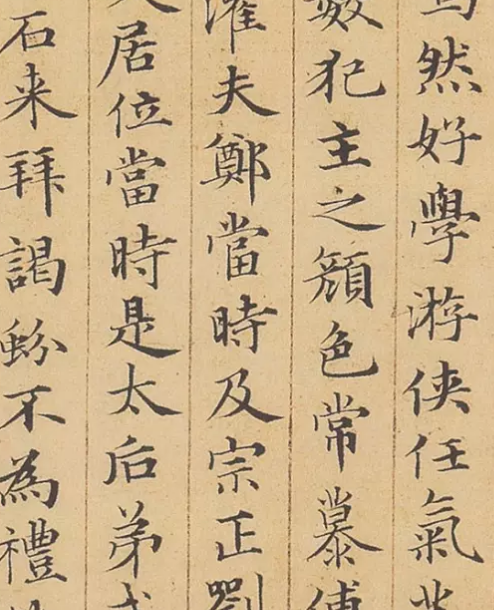 然好學游俠任氣
數犯主之顏色常慕傅
灌夫鄭當時及宗正劉
居位當時是太后弟
石来拜謁蚡不為禮